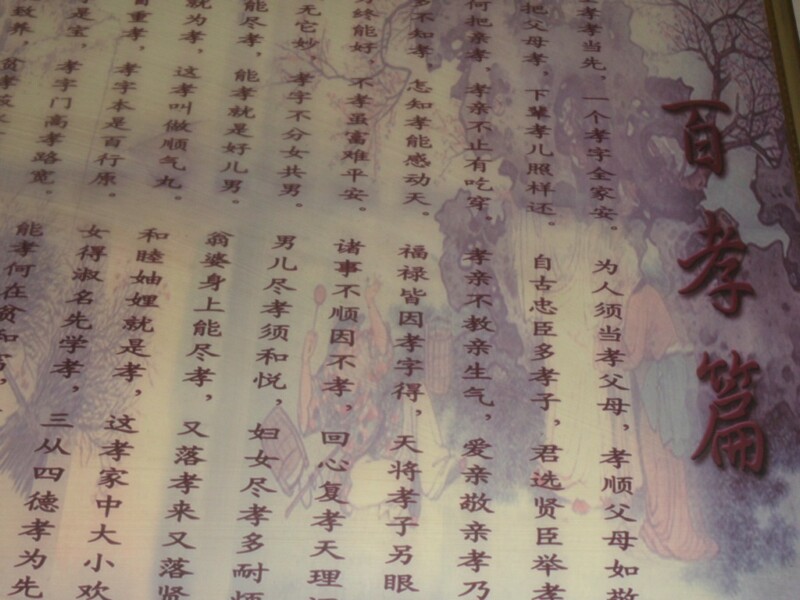 百孝篇
孝当先，一个孝字全家安。 为人须当孝父母，孝顺父母如敬
把父母孝，下辈孝儿照样还。 自古忠臣多孝子，君选贤臣举孝
何把亲孝，孝亲不止有吃穿。 孝亲不教亲生气，爱亲敬亲孝乃
多不知孝，怎知孝能感动天。 福禄皆因孝字得，天将孝子另眼
终能好，不孝虽富难平安。 诸事不顺因不孝，回心复孝天理
无它妙，孝字不分女共男。 男儿尽孝须和悦，妇女尽孝多耐烦
能尽孝，能孝就是好儿男。 翁婆身上能尽孝，又落孝来又落贤
就为孝，这孝叫做顺气丸。 和睦妯娌就是孝，这孝家中大小欢
重孝，孝字本是百行原。 女得淑名先学孝，三从四德孝为先
是宝，孝字门高孝路宽。 能孝何在贫和富，
致养，贫孝